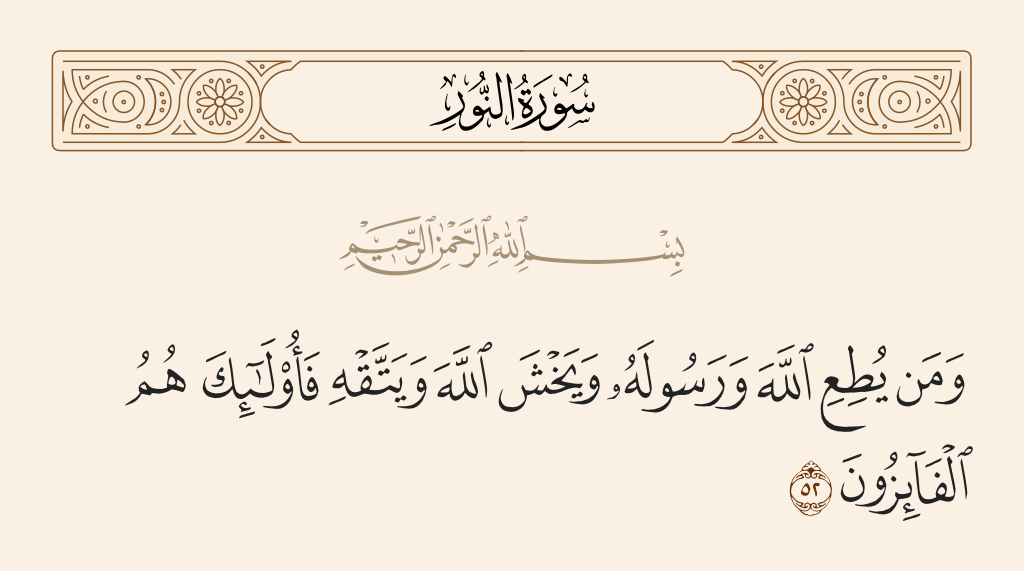 سُورَةُ النُّورِ
بِسْمِ ٱللَّهِ ٱلرَّحْمَٰنِ ٱلرَّحِيمِ
وَمَن يُطِعِ ٱللَّهَ وَرَسُولَهُۥ وَيَخْشَ ٱللَّهَ وَيَتَّقْهِ فَأُو۟لَٰٓئِكَ هُمُ
ٱلْفَآئِزُونَ ٥٢